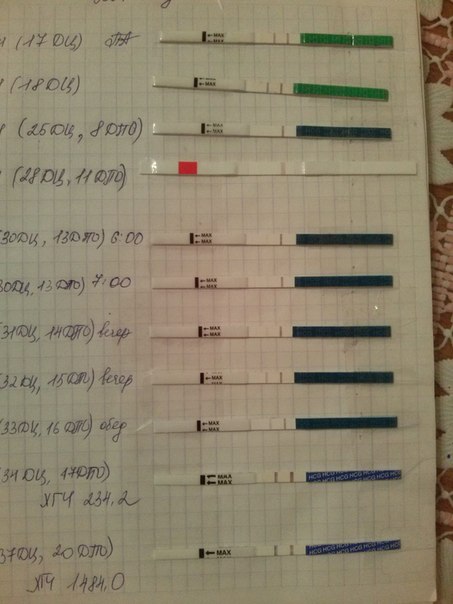 (17 ДЦ) ПА
← MAX
(18 ДЦ)
← MAX
(25 ДЦ, 8 ДПО)
← MAX
(28 ДЦ, 11 ДПО)
30 ДЦ, 13 ДПО) 6:00
← MAX
30 ДЦ, 13 ДПО) 7:00
← MAX
31 ДЦ, 14 ДПО) вечер
← MAX
32 ДЦ, 15 ДПО) вечер
← MAX
33 ДЦ, 16 ДПО) обед
← MAX
34 ДЦ, 17 ДПО)
← MAX
HCG HCG HCG HCG
ХГЧ 234,2
37 ДЦ, 20 ДПО)
← MAX
HCG HCG HCG HCG
ХГЧ 1484,0